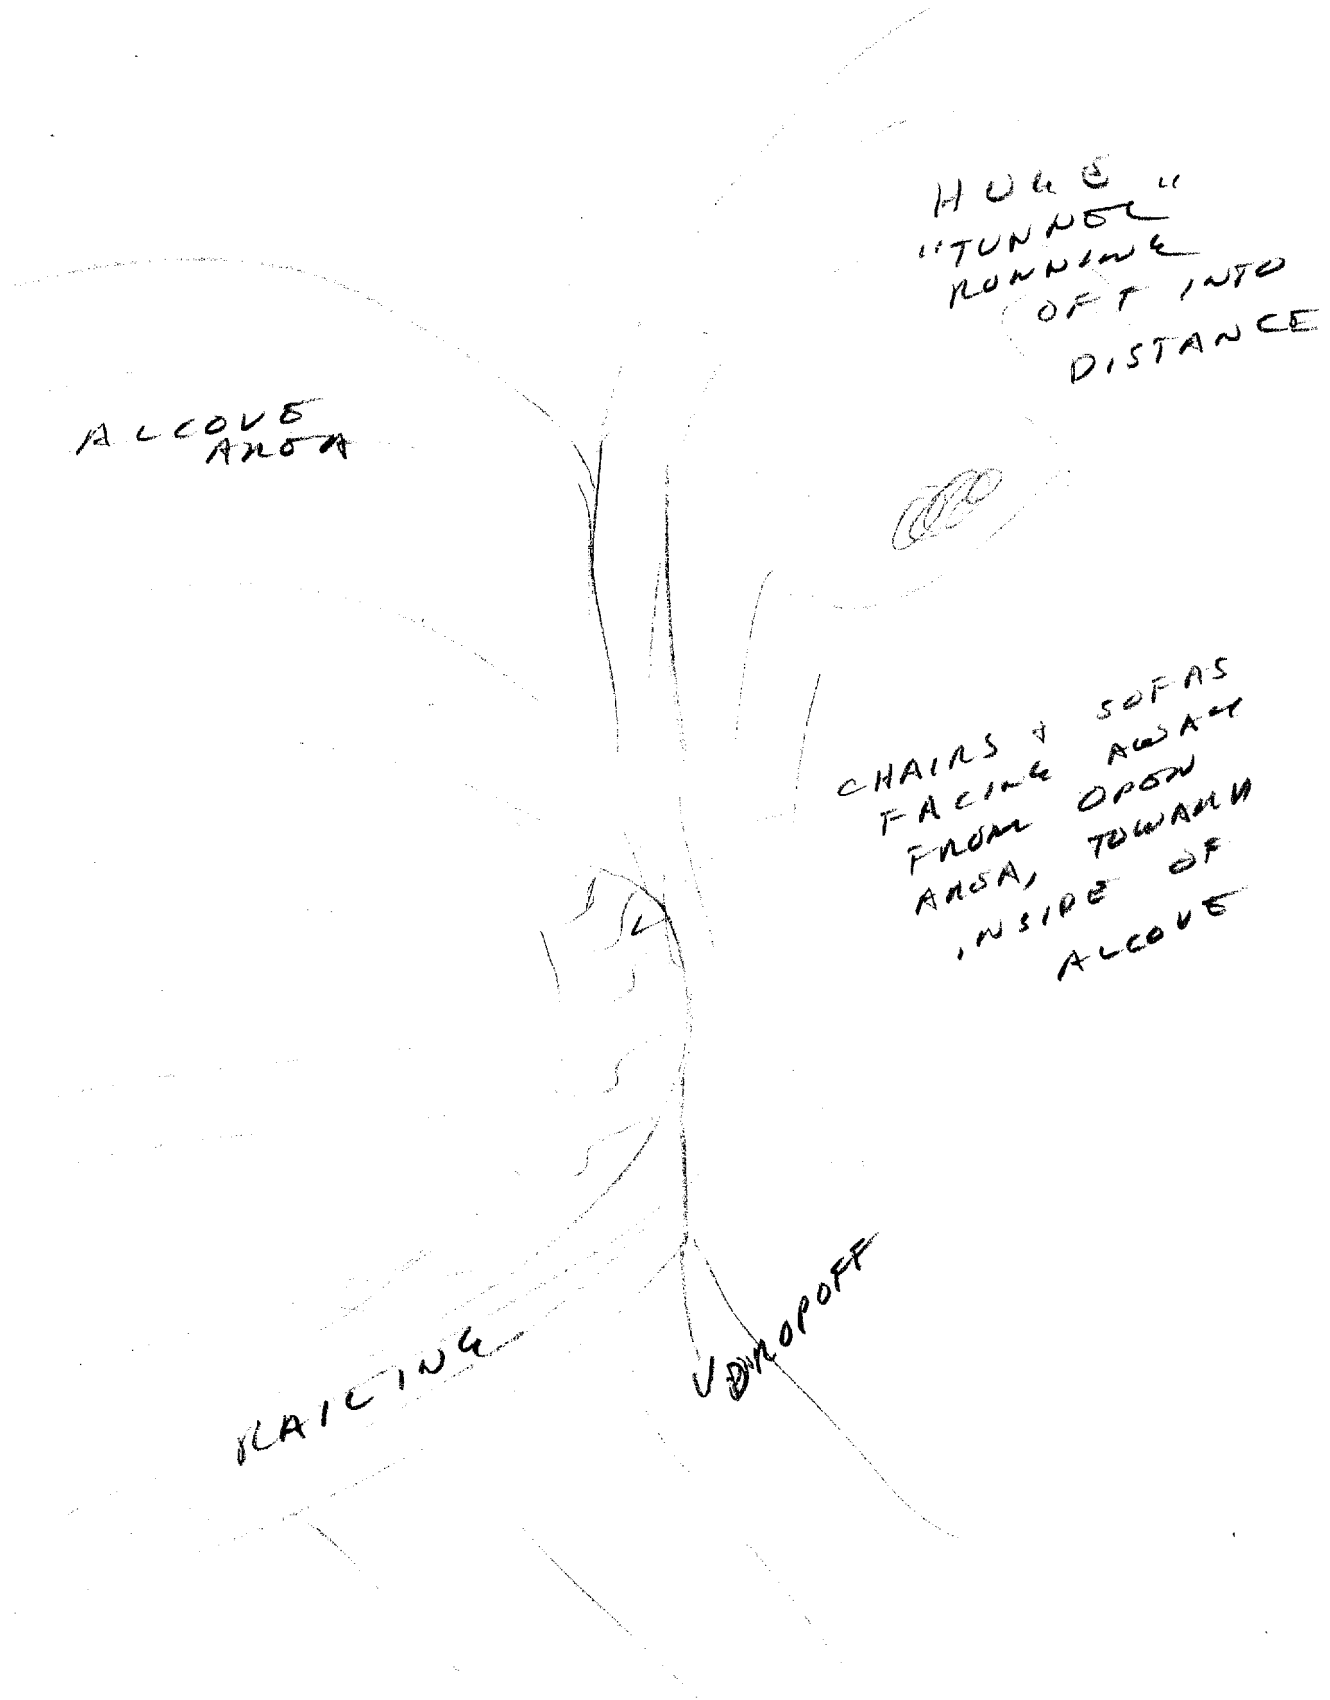 HUGE
"TUNNEL"
RUNNING
OFF INTO
DISTANCE
ALCOVE
AREA
CHAIRS + SOFAS
FACING AWAY
FROM OPEN
AREA, TOWARD
INSIDE OF
ALCOVE
DROPOFF
RAILING